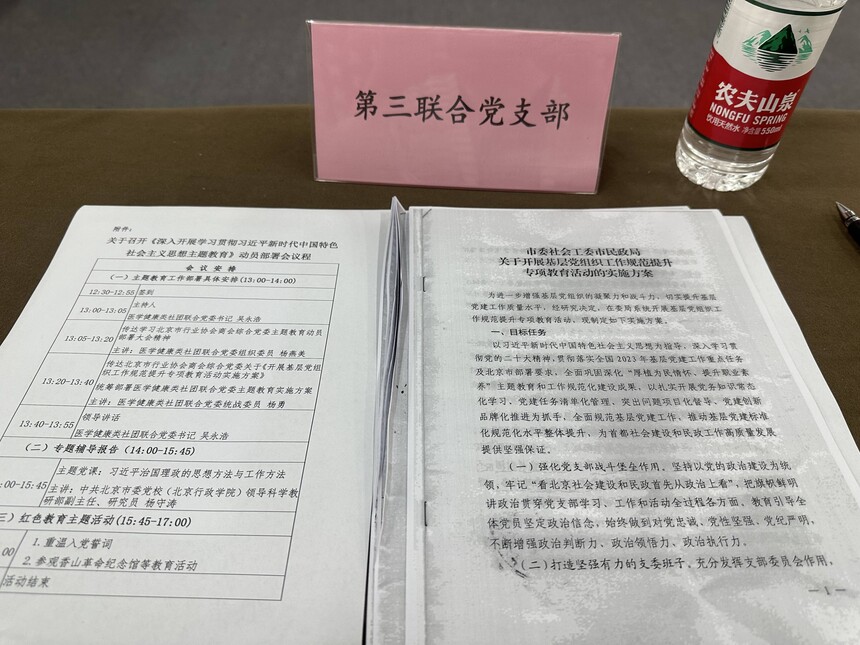 第三联合党支部
农夫山泉
NONGFU SPRING
饮用天然水 净含量550ml
附件：
关于召开《深入开展学习贯彻习近平新时代中国特色
社会主义思想主题教育》动员部署会议程
会 议 安 排
（一）主题教育工作部署具体安排(13:00-14:00)
12:30-12:55 签到
13:00-13:05 主持人
医学健康类社团联合党委书记 吴永浩
13:05-13:20 传达学习北京市行业协会商会综合党委主题教育动员
部署大会精神
主讲：医学健康类社团联合党委组织委员 杨燕美
13:20-13:40 传达北京市行业协会商会综合党委关于《开展基层党组
织工作规范提升专项教育活动实施方案》
统筹部署医学健康类社团联合党委主题教育实施方案
主讲：医学健康类社团联合党委统战委员 杨勇
13:40-13:55 领导讲话
医学健康类社团联合党委书记 吴永浩
（二）专题辅导报告（14:00-15:45）
:00-15:45 主题党课：习近平治国理政的思想方法与工作方法
主讲：中共北京市委党校（北京行政学院）领导科学教
研部副主任、研究员 杨守涛
三）红色教育主题活动(15:45-17:00)
00 1.重温入党誓词
2.参观香山革命纪念馆等教育活动
活动结束
市委社会工委市民政局
关于开展基层党组织工作规范提升
专项教育活动的实施方案
为进一步增强基层党组织的凝聚力和战斗力，切实提升基层
党建工作质量水平，经研究决定，在委局系统开展基层党组织工
作规范提升专项教育活动，现制定如下实施方案。
一、目标任务
以习近平新时代中国特色社会主义思想为指导，深入学习贯
彻党的二十大精神，贯彻落实全国2023年基层党建工作重点任务
及北京市部署要求，全面巩固深化“厚植为民情怀、提升职业素
养”主题教育和工作规范化建设成果，以扎实开展党务知识常态
化学习、党建任务清单化管理、突出问题项目化督导、党建创新
品牌化推进为抓手，全面规范基层党建工作，推动基层党建标准
化规范化水平整体提升，为首都社会建设和民政工作高质量发展
提供坚强保证。
（一）强化党支部战斗堡垒作用。坚持以党的政治建设为统
领，牢记“看北京社会建设和民政首先从政治上看”，把旗帜鲜明
讲政治贯穿党支部学习、工作和活动全过程各方面，教育引导全
体党员坚定政治信念，始终做到对党忠诚、党性坚强、党纪严明，
不断增强政治判断力、政治领悟力、政治执行力。
（二）打造坚强有力的支委班子。充分发挥支部委员会作用，
—1—